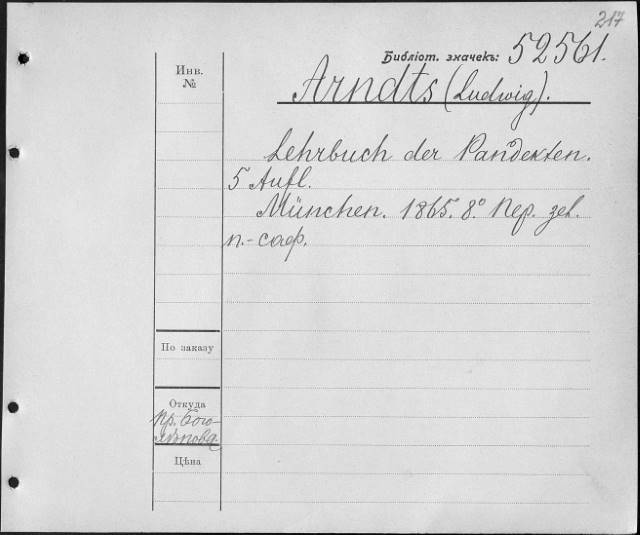 217
Библіот. значекъ: 52561.
Инв.
№
Arndts (Ludwig).
Lehrbuch der Pandekten.
5 Aufl.
München. 1865. 8° Пер. зел.
п.-саф.
По заказу
Откуда
Пр. Бого-
лѣпова
Цѣна